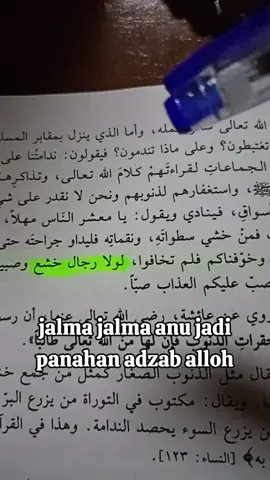 الله تعالى
وأما الذي ينزل بمقابر المسل
تغتبطون؟ وعلى ماذا تندمون؟ فيقولون: ندامتُنا على
الجماعاتِ لقراءتَهمْ كلامَ الله تعالى، وتذاكرهـ
ﷺ، واستغفارهم لذنوبهم ونحن لا نقدر على شي
سواقِ، فينادي ويقول: يا معشر النّاس مهلاً،
فمنْ خشي سطواتِهِ، ونقماتِه فليداوِ جراحتَه حتى
وخوّفناكم فلم تخافوا، لولا رجال خشع وصبيـ
صبّ عليكم العذاب صبّاً.
jalma jalma anu jadi
panahan adzab alloh
روي عن عائشة، رضي الله تعالى عنها أن رسو
حقرات الذنوب فإن لها من الله تعالى طالباً».
قال مثل الذنوب الصغار كمثل من جمع خشـ
ويقال: مكتوب في التوراة من يزرع البرّ
ن يزرع السوء يحصد الندامة. وهذا في القرآ
به﴾ [النساء: ١٢٣].